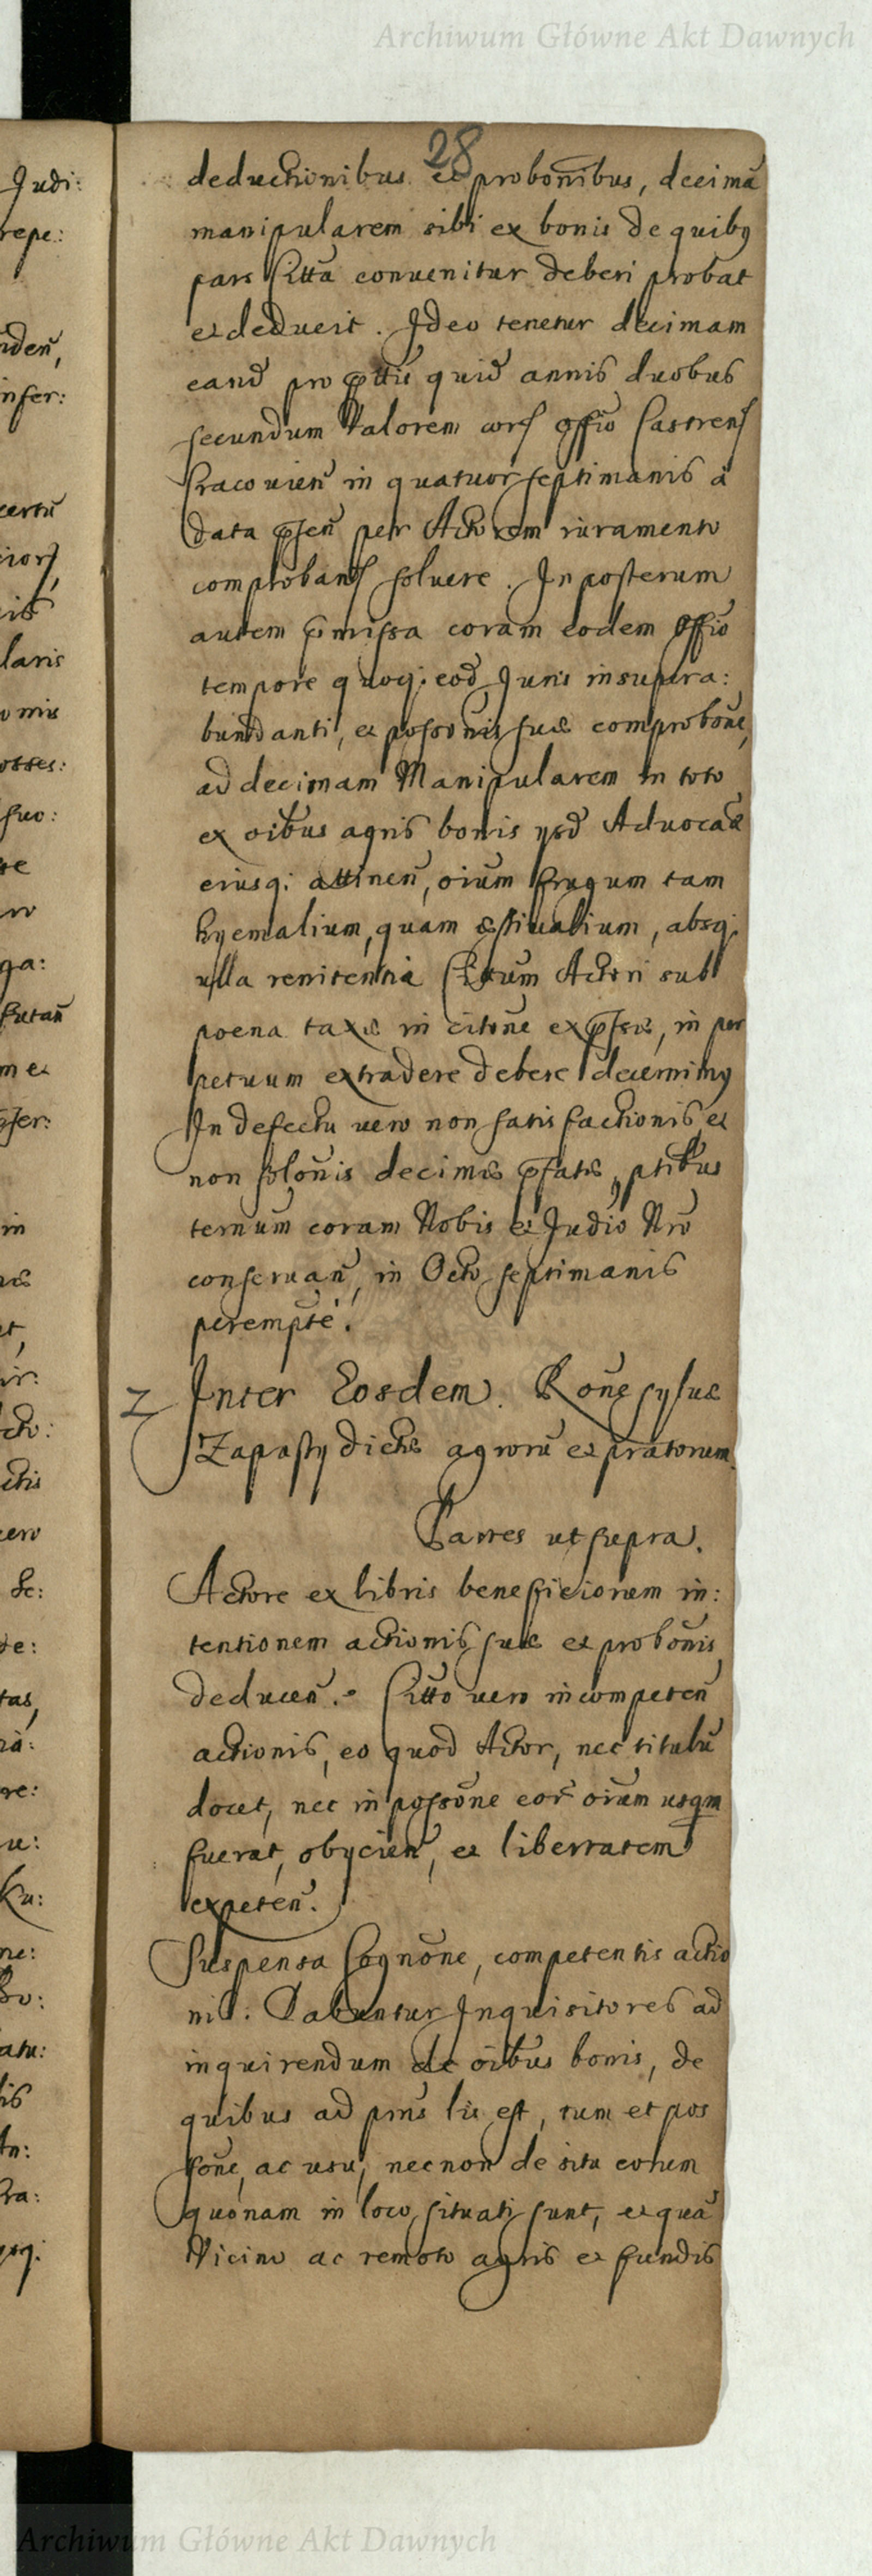 Archiwum Główne Akt Dawnych
28
deductionibus et probonibus, decimā
manipularem sibi ex bonis de quibꝯ
pars Citta conuenitur deberi probat
et deducit. Ideo tenetur decimam
eand pro quid annis duobus
secundum Valorem cors Offio Castrenſ
Cracouien in quatuor septimanis à
data pſen per Actorem iuramento
comprobanſ soluere. In posterum
autem pmissa coram eodem Offio
tempore quoq; eod Juris in supra:
bundanti, et possonis suæ comprobone,
ad decimam Manipularem in toto
ex oibus agris bonis Aduocaæ
eiusq: attinen, oium frugum tam
hyemalium, quam æstiualium, absq.
ulla renitentia Cittum Actori sub
poena taxæ in citone expſsæ, in per
petuum extradere debere decernimꝯ
In defectu vero non satisfactionis et
non solonis decimæ pfatæ, ptibus
ternum coram Nobis et Judio Nro
conseruan, in Octo septimanis
perempte.
2 Inter Eosdem. Rone syluæ
Zapasty dictæ agroru et pratorum
Partes ut supra.
Actore ex libris beneficiorum in:
tentionem actionis suæ et probonis
deducen. Citto vero incompeten
actionis, eo quod Actor, nec titulu
docet, nec in possone eor oium usqm
fuerat, obycien, et libertatem
expeten.
Suspensa Cognone, competentis actio
nis. Dabuntur Inquisitores ad
inquirendum de oibus bonis, de
quibus ad pns lis est, tum et pos
sone, ac usu, necnon de situ eorum
quonam in loco situati sunt, et qua
Vicino ac remoto agris et fundis
Archiwum Główne Akt Dawnych